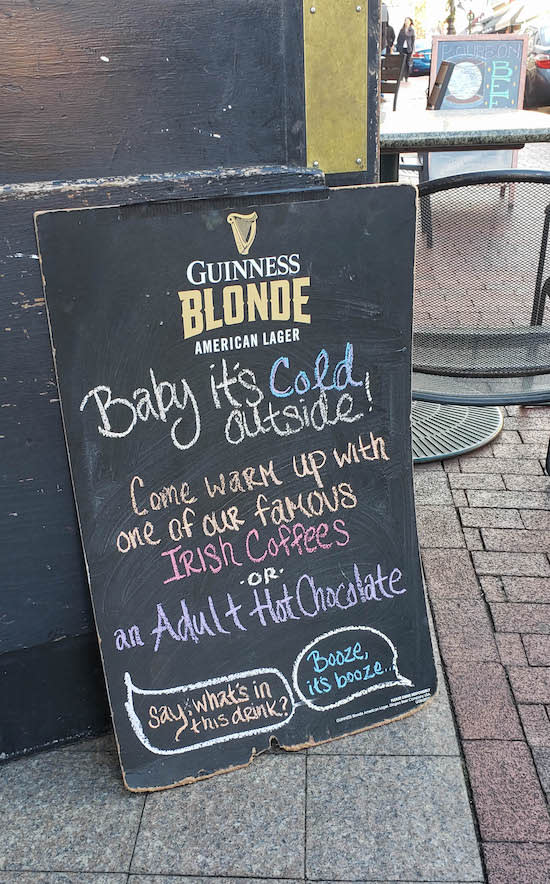 BOURBON
GUINNESS
BLONDE
AMERICAN LAGER
Baby it's Cold
outside!
Come warm up with
one of our famous
Irish Coffees
·OR·
an Adult Hot Chocolate
Booze,
it's booze...
Say, what's in
this drink?